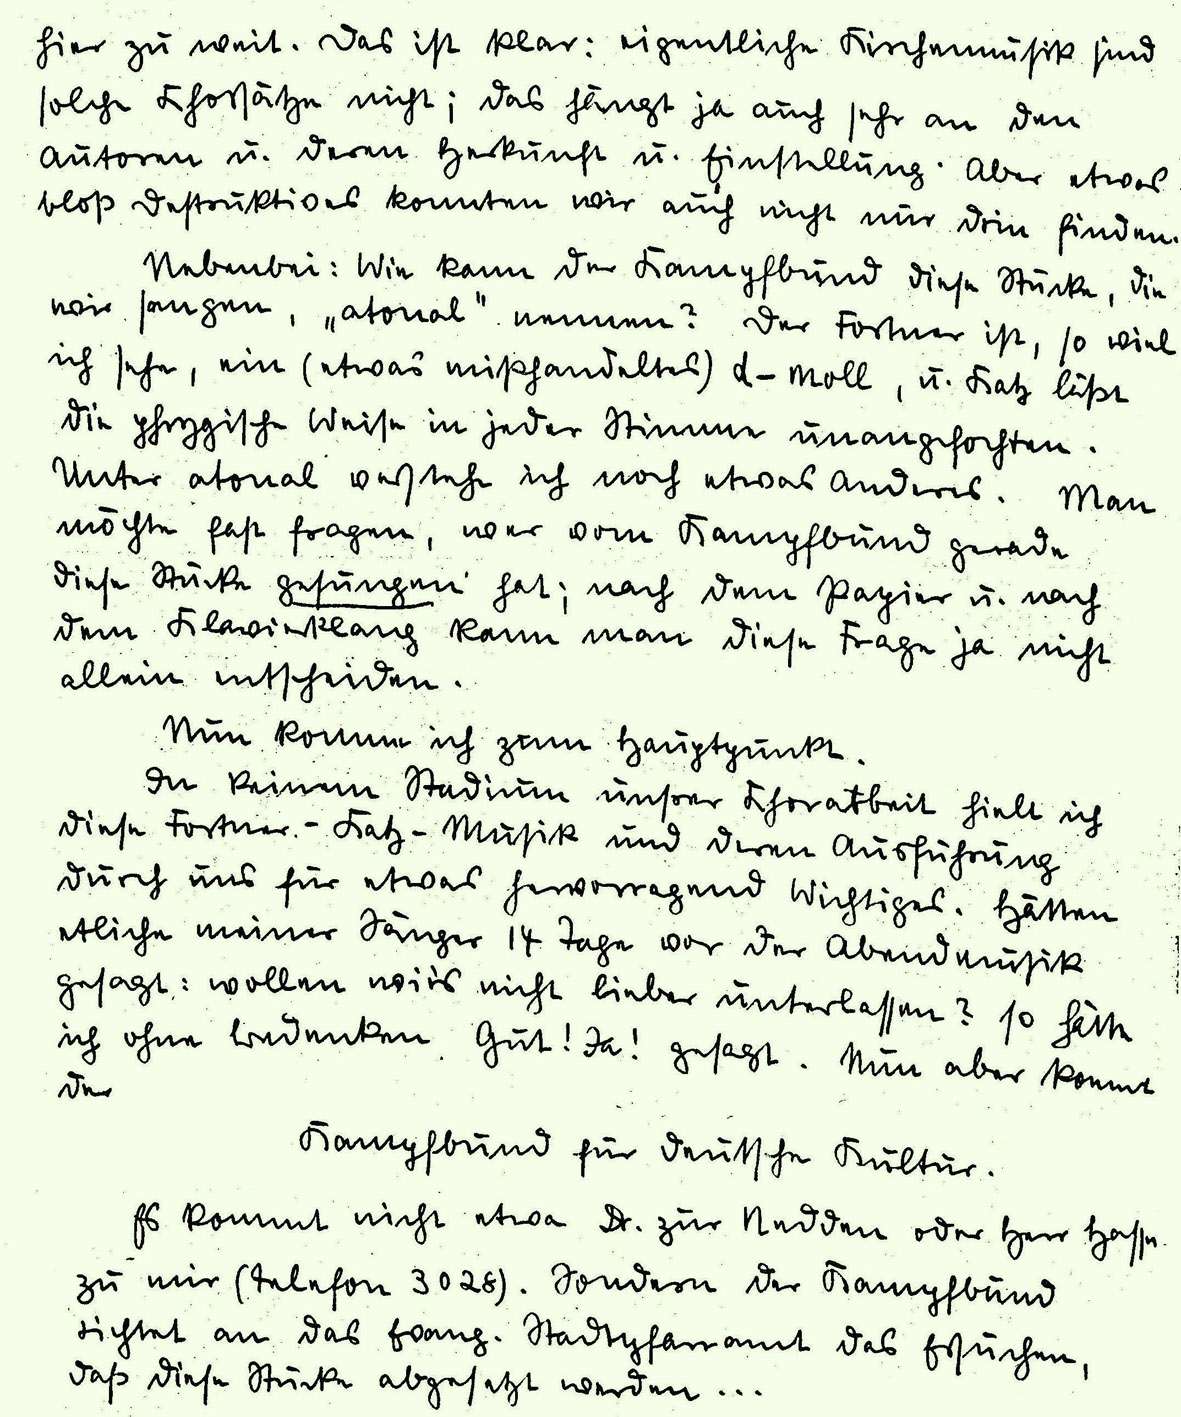 hier zu weit. Das ist klar: eigentliche Kirchenmusik sind
solche Chorsätze nicht; das hängt ja auch sehr an den
Autoren u. deren Herkunft u. Einstellung. Aber etwas
bloß Destruktives konnten wir auch nicht nur drin finden.
Nebenbei: Wie kann der Kampfbund diese Stücke, die
wir sangen, „atonal" nennen? Der Fortner ist, so viel
ich sehe, ein (etwas mißhandeltes) d-moll, u. Katz läßt
die phrygische Weise in jeder Stimme unangefochten.
Unter atonal verstehe ich noch etwas Anderes. Man
möchte fast fragen, wer vom Kampfbund gerade
diese Stücke gesungen hat; nach dem Papier u. nach
dem Klavierklang kann man diese Frage ja nicht
allein entscheiden.
Nun komme ich zum Hauptpunkt.
In keinem Stadium unsrer Chorarbeit hielt ich
diese Fortner-Katz-Musik und deren Ausführung
durch uns für etwas hervorragend Wichtiges. Hätten
etliche meiner Sänger 14 Tage vor der Abendmusik
gesagt: wollen wir's nicht lieber unterlassen? so hätte
ich ohne Bedenken Gut! Ja! gesagt. Nun aber kommt
der
Kampfbund für deutsche Kultur.
Es kommt nicht etwa Dr. zur Nedden oder Herr Hasse
zu mir (Telefon 3028). Sondern der Kampfbund
richtet an das Evang. Stadtpfarramt das Ersuchen,
daß diese Stücke abgesetzt werden ...